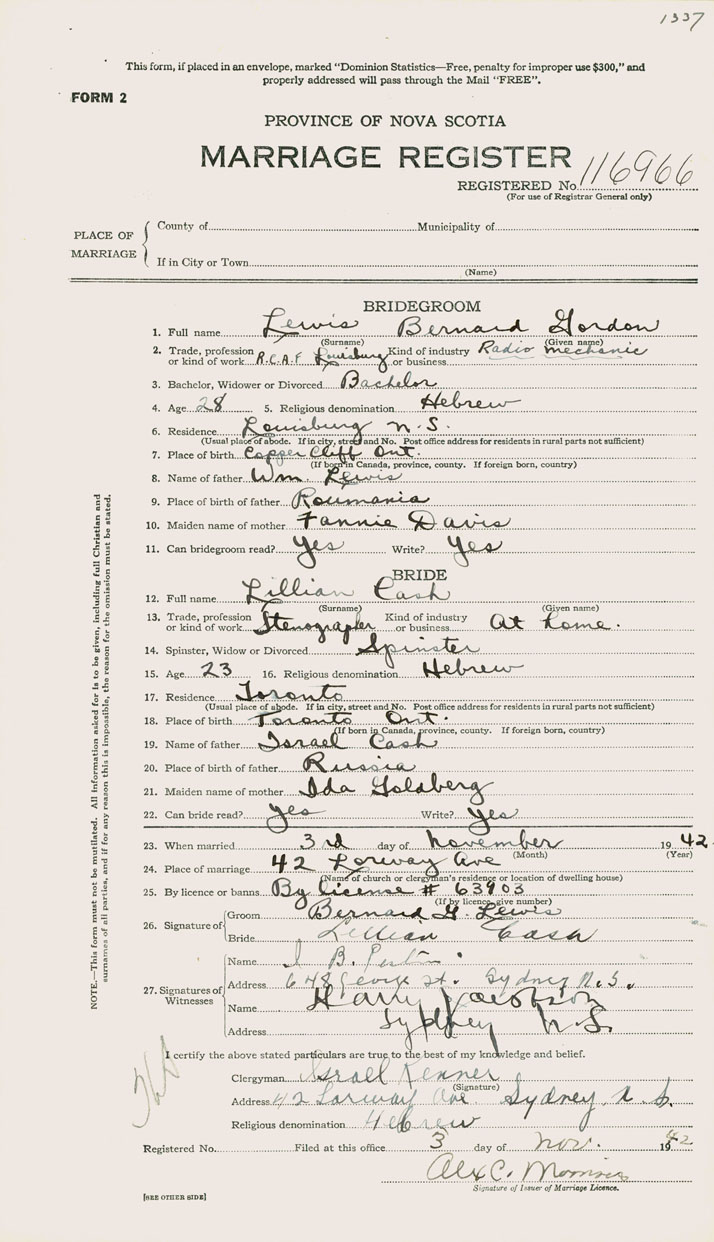 1337
This form, if placed in an envelope, marked “Dominion Statistics—Free, penalty for improper use $300,” and
properly addressed will pass through the Mail “FREE”.
FORM 2
PROVINCE OF NOVA SCOTIA
MARRIAGE REGISTER
REGISTERED No. 116966
(For use of Registrar General only)
PLACE OF MARRIAGE
County of Municipality of
If in City or Town
(Name)
BRIDEGROOM
1. Full name Lewis Bernard Gordon
(Surname) (Given name)
2. Trade, profession or kind of work R.C.A.F Louisburg Kind of industry or business Radio mechanic
3. Bachelor, Widower or Divorced Bachelor
4. Age 28 5. Religious denomination Hebrew
6. Residence Louisburg N.S.
(Usual place of abode. If in city, street and No. Post office address for residents in rural parts not sufficient)
7. Place of birth Copper Cliff Ont.
(If born in Canada, province, county. If foreign born, country)
8. Name of father Wm. Lewis
9. Place of birth of father Roumania
10. Maiden name of mother Fannie Davis
11. Can bridegroom read? Yes Write? Yes
BRIDE
12. Full name Lillian Cash
(Surname) (Given name)
13. Trade, profession or kind of work Stenographer Kind of industry or business At home.
14. Spinster, Widow or Divorced Spinster
15. Age 23 16. Religious denomination Hebrew
17. Residence Toronto
(Usual place of abode. If in city, street and No. Post office address for residents in rural parts not sufficient)
18. Place of birth Toronto Ont.
(If born in Canada, province, county. If foreign born, country)
19. Name of father Israel Cash
20. Place of birth of father Russia
21. Maiden name of mother Ida Goldberg
22. Can bride read? Yes Write? Yes
23. When married 3rd day of November 1942
(Month) (Year)
24. Place of marriage 42 Lorway Ave
(Name of church or clergyman's residence or location of dwelling house)
25. By licence or banns By license # 63903
(If by licence, give number)
26. Signature of
Groom Bernard G. Lewis
Bride Lillian Cash
27. Signatures of Witnesses
Name B.
Address 648 George St. Sydney N.S.
Name Harry Jacobson
Address Sydney N.S.
I certify the above stated particulars are true to the best of my knowledge and belief.
Clergyman Israel Kenner
(Signature)
Address 42 Lorway Ave. Sydney N.S.
Religious denomination Hebrew
Registered No. Filed at this office 3 day of Nov. 1942
Alex C.
Signature of Issuer of Marriage Licence.
[SEE OTHER SIDE]
NOTE.—This form must not be mutilated. All information asked for is to be given, including full Christian and
surnames of all parties, and if for any reason this is impossible, the reason for the omission must be stated.